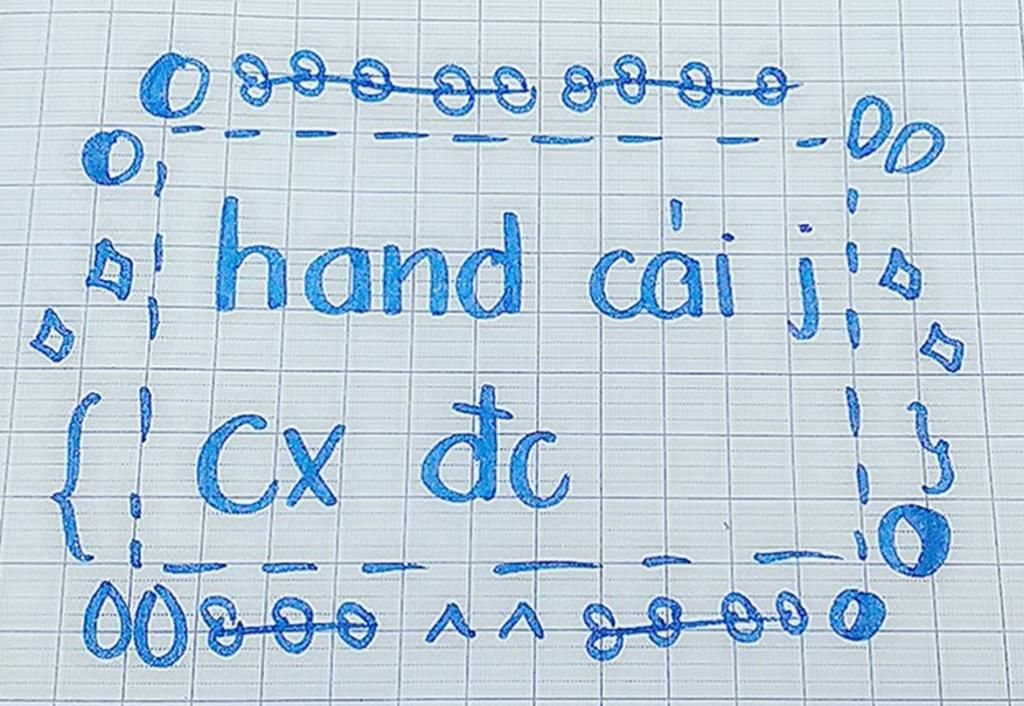 hand cái j
cx đc